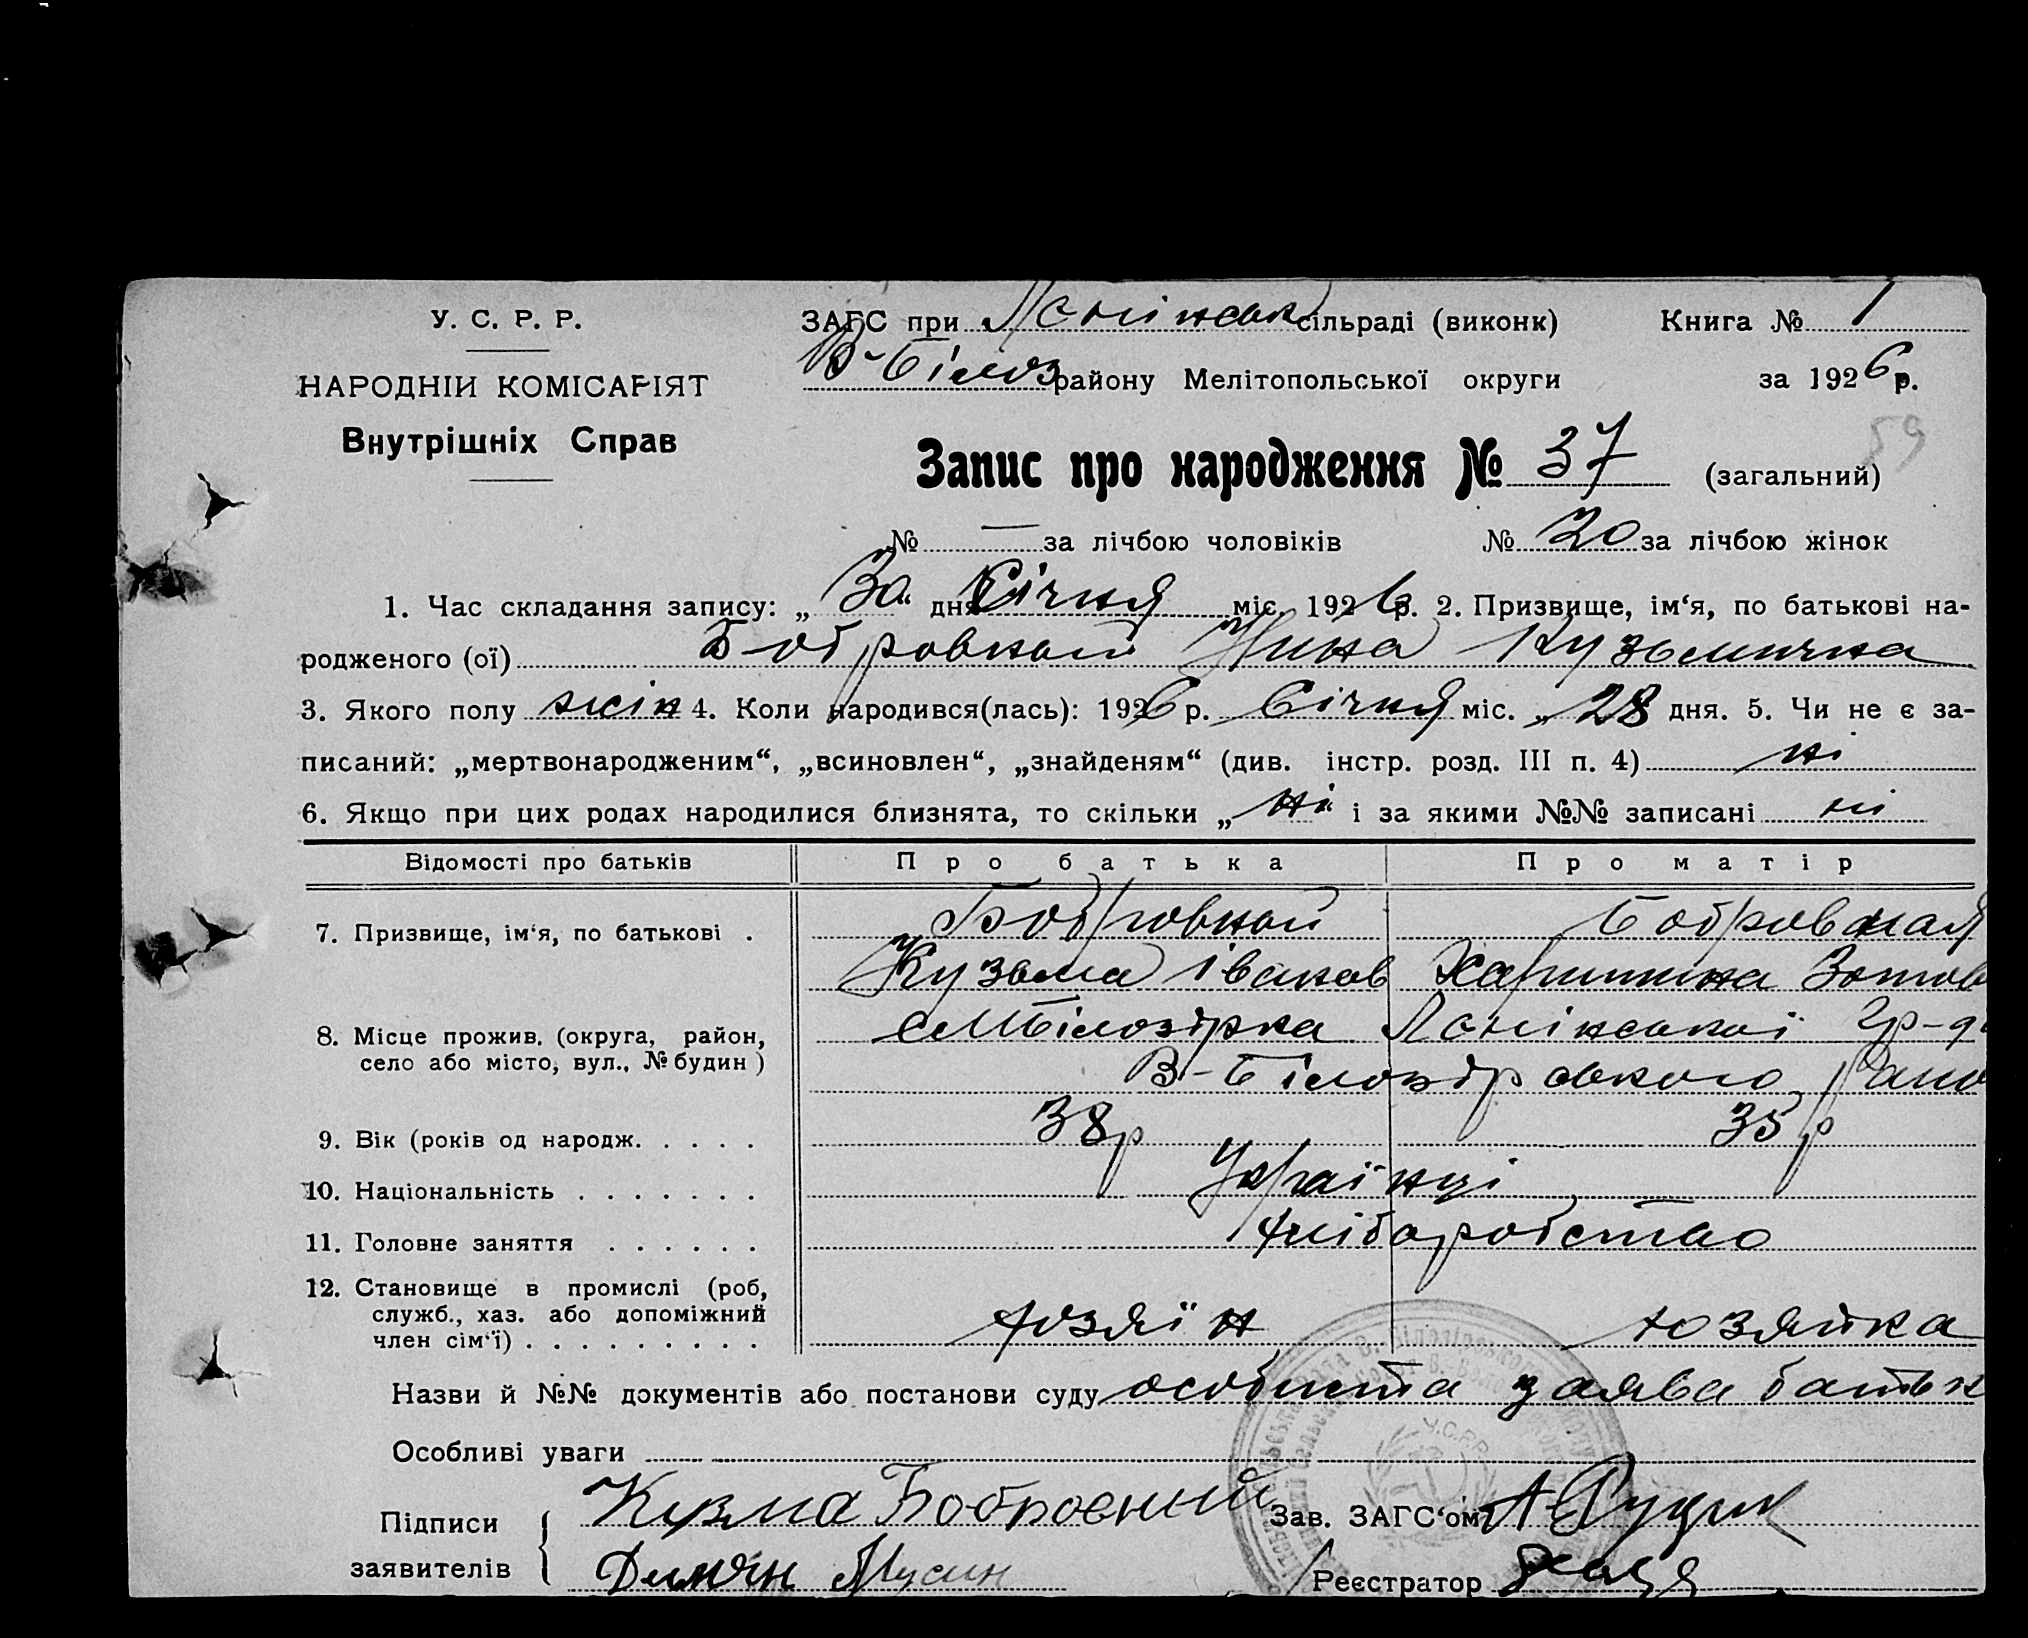 У. С. Р. Р.
НАРОДНІЙ КОМІСАРІЯТ
Внутрішніх Справ
ЗАГС при Ленінськ сільраді (виконк) Книга № 1
В-Білоз району Мелітопольської округи за 1926 р.
59
Запис про народження № 37 (загальний)
№ — за лічбою чоловіків № 20 за лічбою жінок
1. Час складання запису: „30“ дня Січня міс. 1926 р. 2. Призвище, ім‘я, по батькові на-
родженого (ої) Бобровной Нина Кузьмична
3. Якого полу жін 4. Коли народився(лась): 1926 р. Січня міс. „28 дня. 5. Чи не є за-
писаний: „мертвонародженим“, „всиновлен“, „знайденям“ (див. інстр. розд. III п. 4) ні
6. Якщо при цих родах народилися близнята, то скільки „ні“ і за якими №№ записані ні
Відомості про батьків Про батька Про матір
7. Призвище, ім‘я, по батькові . Бобровной Бобровная
Кузьма Іванов Харитина Зотов
8. Місце прожив. (округа, район, село або місто, вул., № будин) Білозірка Ленінської гр-
В-Білозірського
9. Вік (років од народж. . . . . 38 р 35 р
10. Національність . . . . . . . Українці
11. Головне заняття . . . . . . хліборобство
12. Становище в промислі (роб,
служб., хаз. або допоміжний
член сім‘ї) . . . . . . . . . хозяїн хозяйка
Назви й №№ документів або постанови суду особиста заява батьк
Особливі уваги
Підписи Кузма Бобровний Зав. ЗАГС‘ом
заявителів Реєстратор
У.С.Р.Р.